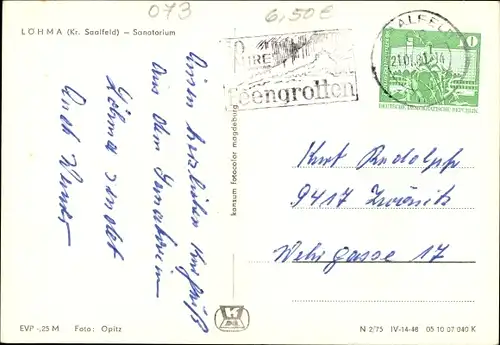 073
6,50€
LÖHMA (Kr. Saalfeld) – Sanatorium
Einen herzlichen Kurgruß
aus dem Sanatorium
Löhma sendet
JAHRE
Feengrotten
SAALFELD
21.01.81-14
10
DEUTSCHE DEMOKRATISCHE REPUBLIK
konsum fotocolor magdeburg
Kurt Rudolph
9417 Zwönitz
Wehrgasse 17
EVP -,25 M Foto: Opitz
N 2/75 IV-14-48 05 10 07 040 K